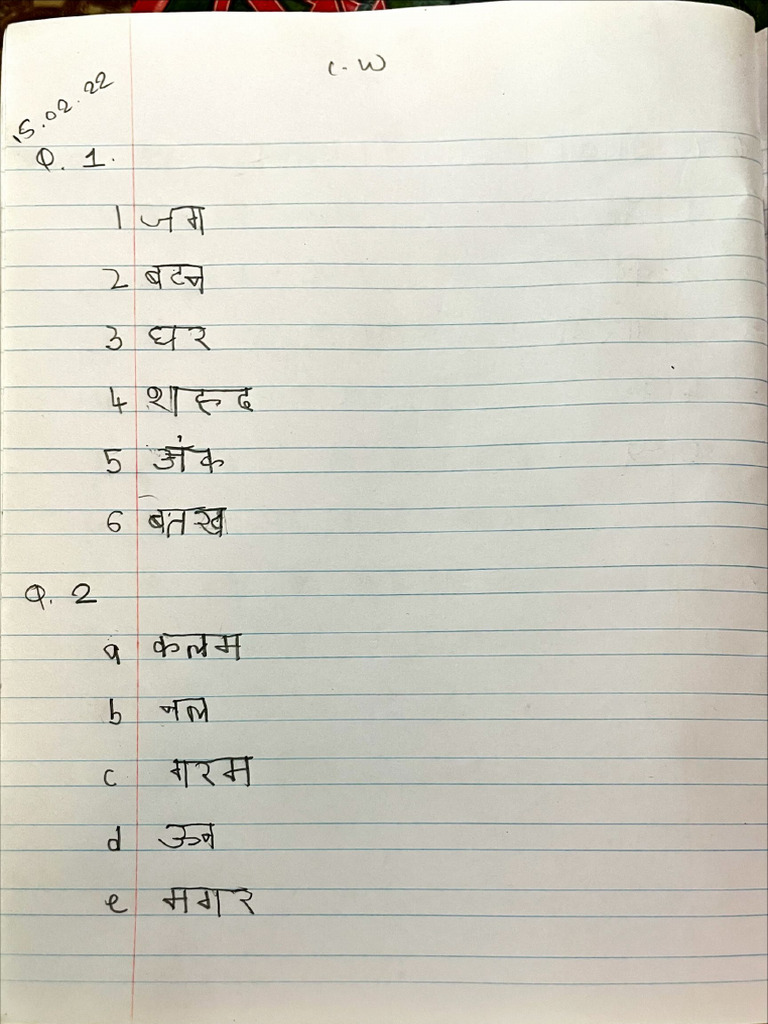 C.W
15.02.22
Q. 1.
1 जग
2 बटन
3 घर
4 शहद
5 अंक
6 बतख
Q. 2
a कलम
b नल
c गरम
d ऊन
e मगर